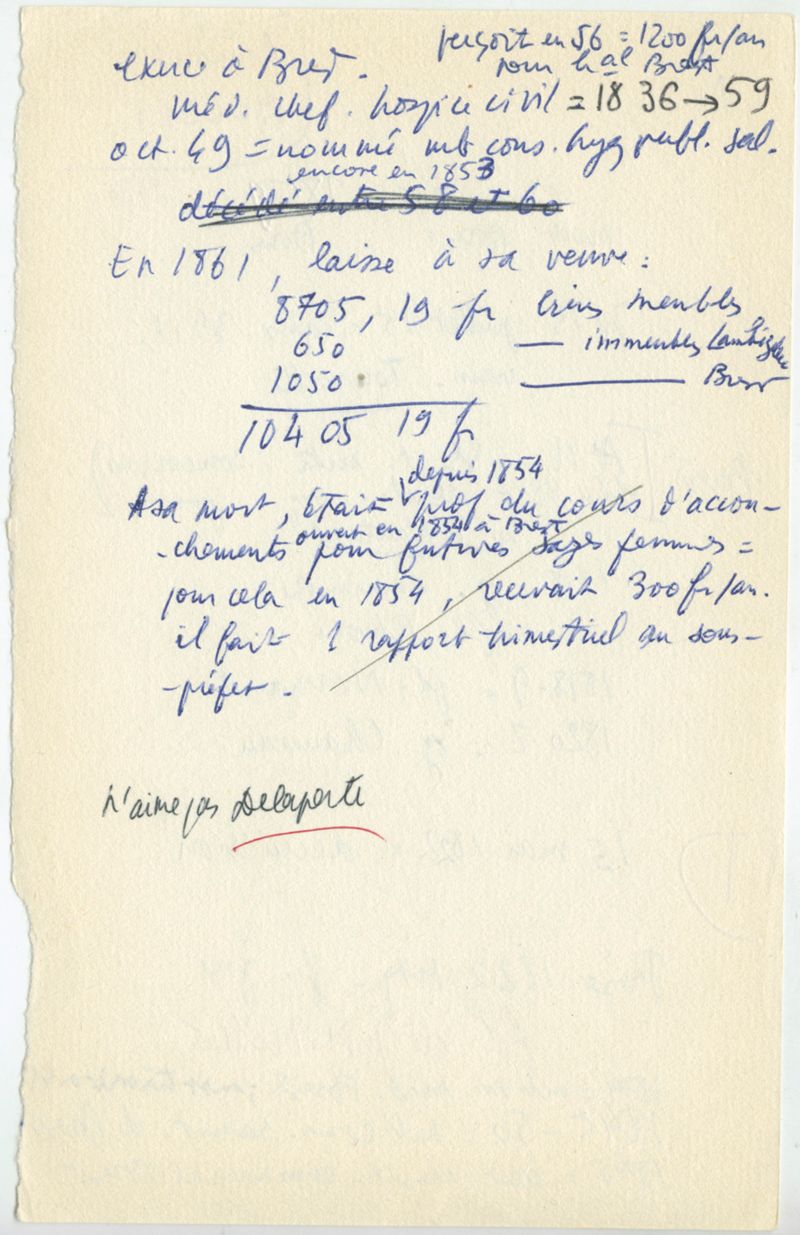 perçoit en 56 = 1200 fr/an
pour h^al Brest
exerce à Brest.
méd. chef. hospice civil = 1836 → 59
oct. 49 = nommé mb cons. hyg publ. sal.
encore en 1853
décédé entre 58 et 60
En 1861, laisse à sa veuve :
8705, 19 fr biens meubles
650 — immeubles Lambézellec
1050 — Brest
10405 19 fr
depuis 1854
A sa mort, était prof du cours d'accou-
ouvert en 1854 à Brest
-chements pour futures sages femmes =
pour cela en 1854, recevait 300 fr/an.
il fait 1 rapport trimestriel au sous-
-préfet.
N'aime pas Delaporte